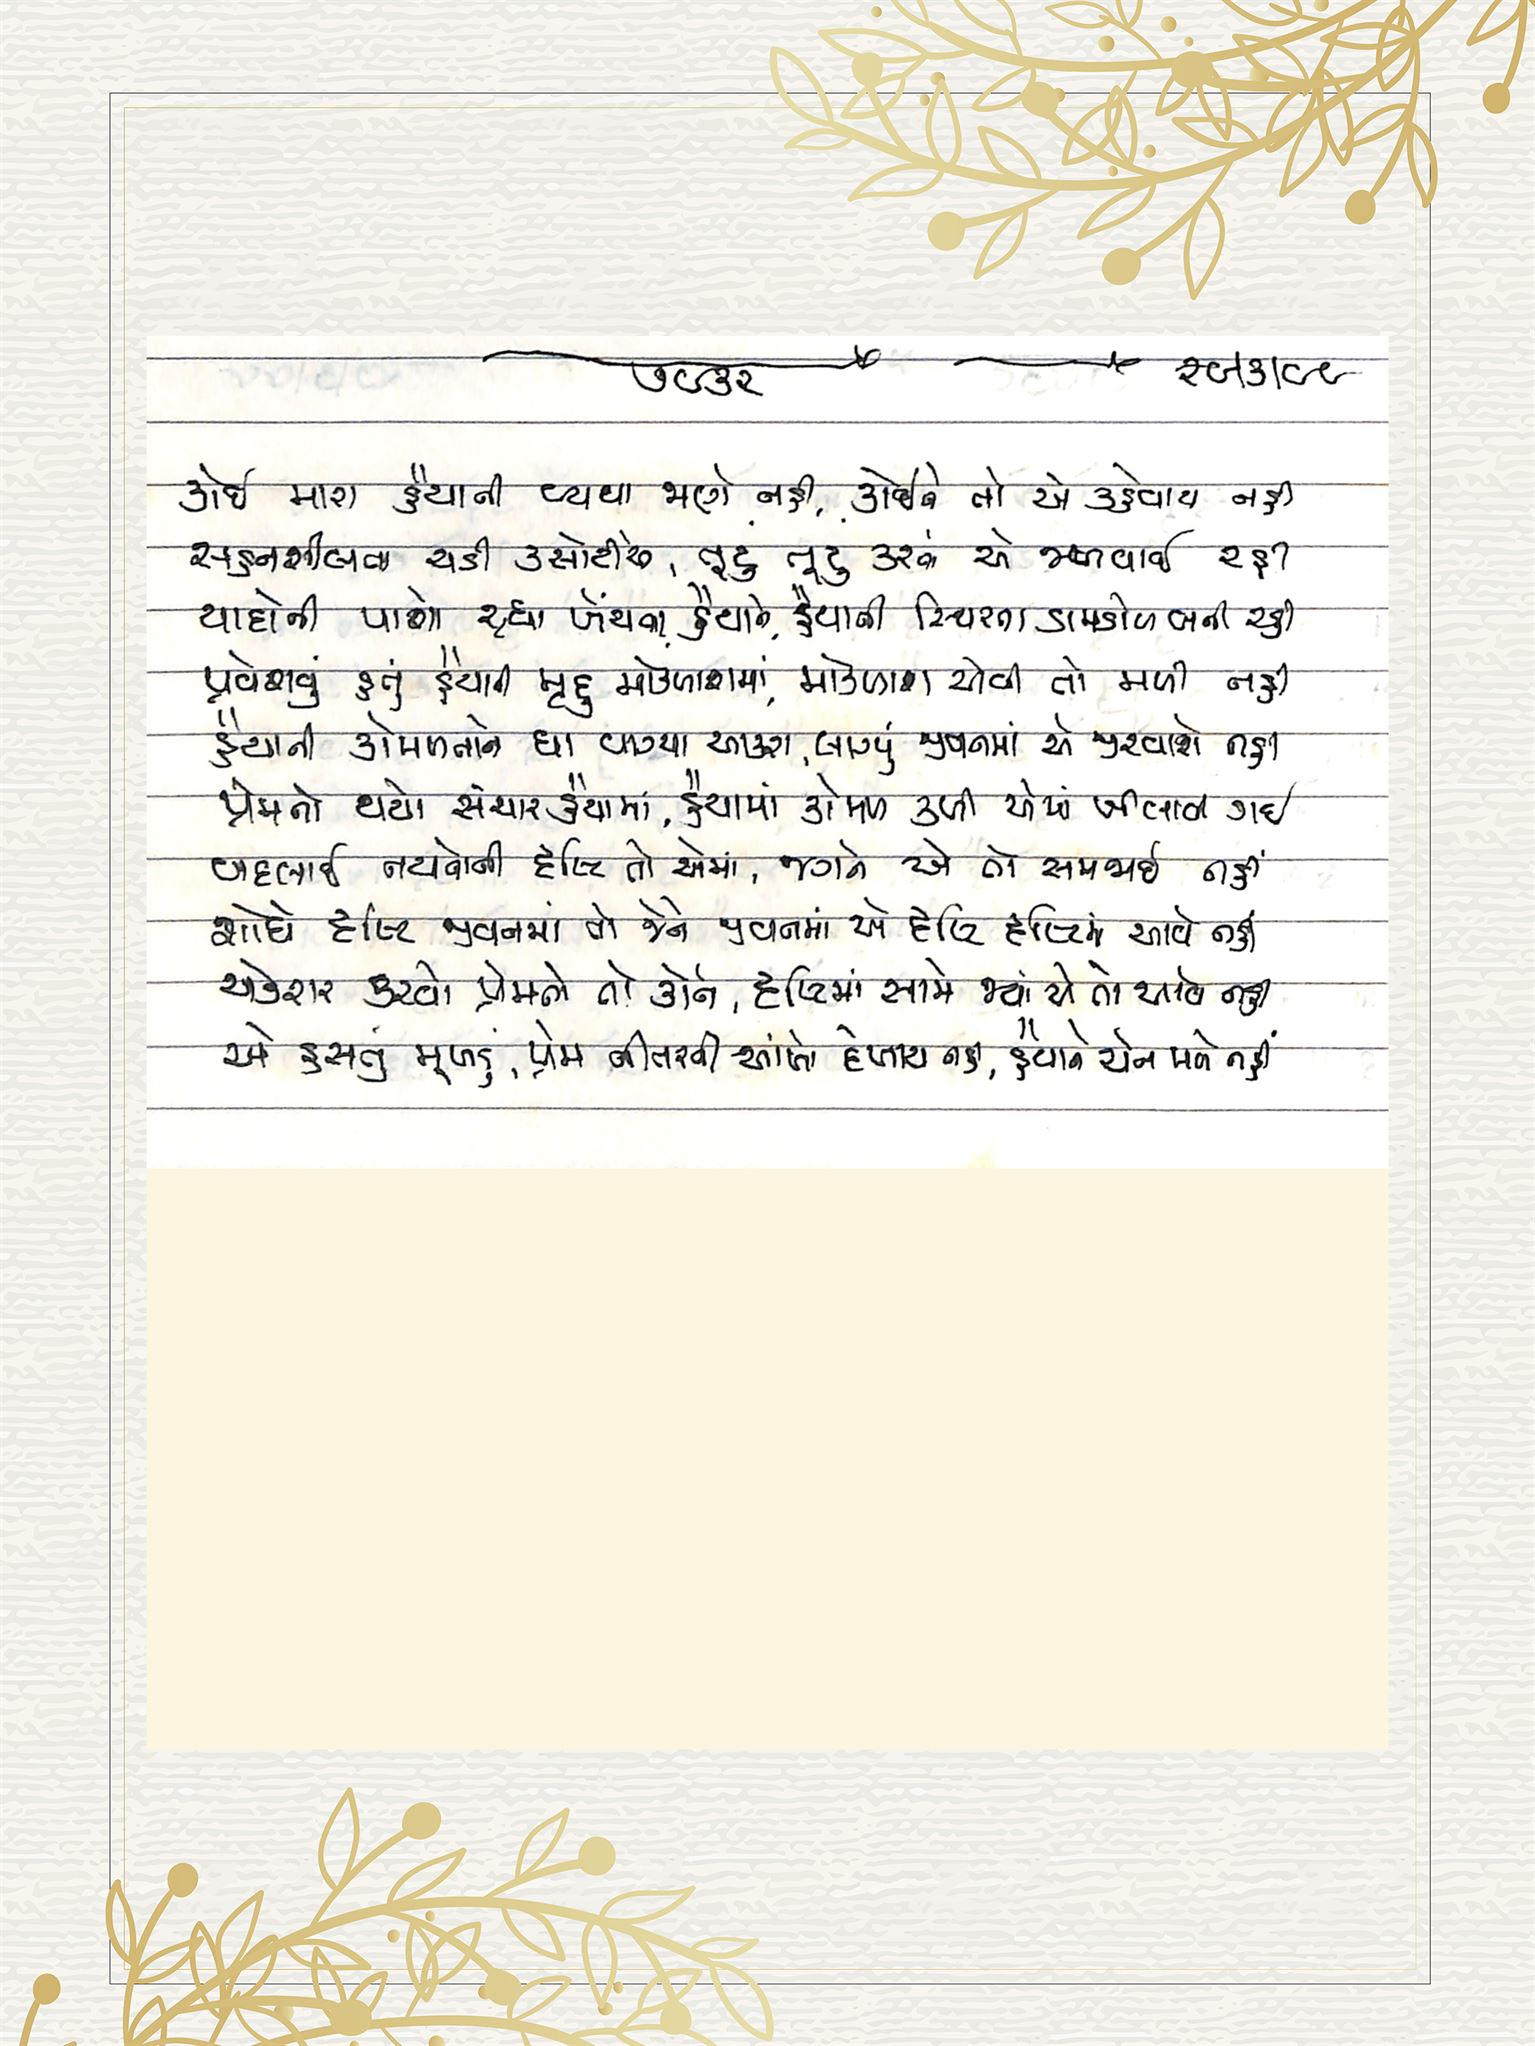 કોઈ મારા હૈયાની વ્યથા જાણે નહીં, કોઈને તો એ કહેવાય નહીં
સહનશીલતા ચડી કસોટીએ, તૂટું તૂટું કરતં એ જાળવાઈ રહી
યાદોની પાશો રહ્યા ખેંચતા હૈયાને, હૈયાની સ્થિરતા ડામડોળ બની રહી
પ્રવેશવું હતું હૈયાની મૃદુ મોકળાશમાં, મોકળાશ એવી તો મળી નહીં
હૈયાની કોમળતાને ઘા વાગ્યા આકરા, લાગ્યું જીવનમાં એ જીરવાશે નહીં
પ્રેમનો થયો સંચાર હૈયામાં, હૈયામાં કોમળ કળી એમાં ખીલતી ગઈ
બદલાઈ નયનોની દૃષ્ટિ તો એમાં, જગને એ તો સમજાઈ નહીં
શોધે દૃષ્ટિ જીવનમાં તો જેને જીવનમાં એ દૃષ્ટિ દૃષ્ટિમાં આવે નહીં
એકરાર કરવો પ્રેમનો તો કોને, દૃષ્ટિમાં સામે જ્યાં એ તો આવે નહીં
એ હસતું મુખડું, પ્રેમ નીતરતી આંખો દેખાય નહીં, હૈયાને ચેન મળે નહીં